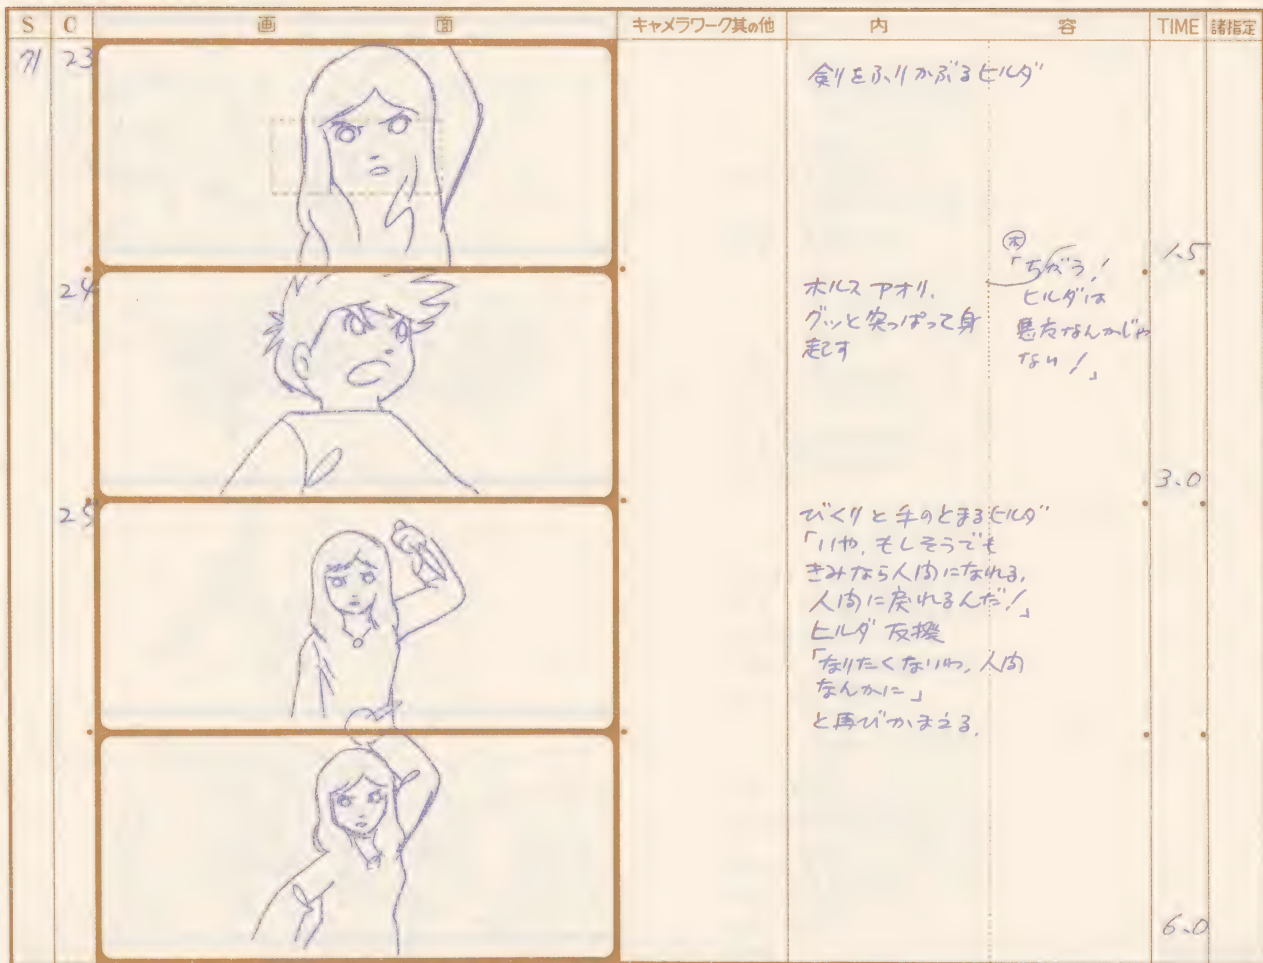 S C 画 面 キャメラワーク其の他 内 容 TIME 諸指定
71 23
剣をふりかぶるヒルダ
1.5
24
ホルス アオリ.
グッと突っぱって身
起す
ホ
「ちがう!
ヒルダは
悪魔なんかじゃ
ない!」
3.0
25
びくりと手のとまるヒルダ
「いや、もしそうでも
きみなら人間になれる、
人間に戻れるんだ!」
ヒルダ 反撥
「なりたくないわ、人間
なんかに」
と再びかまえる.
6.0